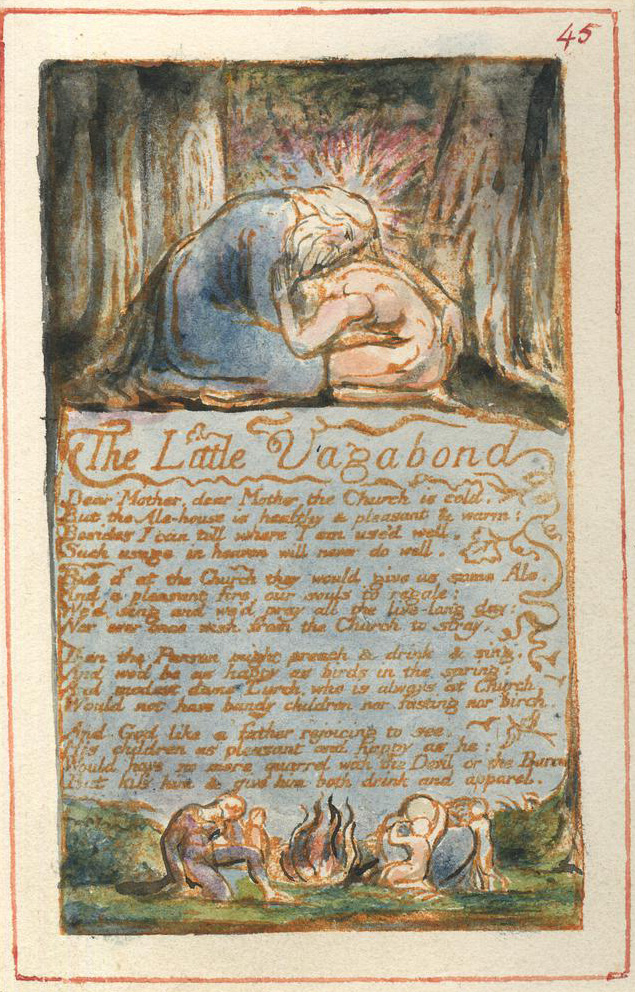 45
The Little Vagabond
Dear Mother, dear Mother, the Church is cold.
But the Ale-house is healthy & pleasant & warm:
Besides I can tell where I am use'd well.
Such usage in heaven will never do well.
But if at the Church they would give us some Ale.
And a pleasant fire, our souls to regale:
We'd sing and we'd pray all the live-long day:
Nor ever once wish from the Church to stray.
Then the Parson might preach & drink & sing.
And we'd be as happy as birds in the spring:
And modest dame Lurch, who is always at Church
Would not have bandy children nor fasting nor birch.
And God like a father rejoicing to see.
His children as pleasant and happy as he:
Would have no more quarrel with the Devil or the Barrel
But kiss him & give him both drink and apparel.